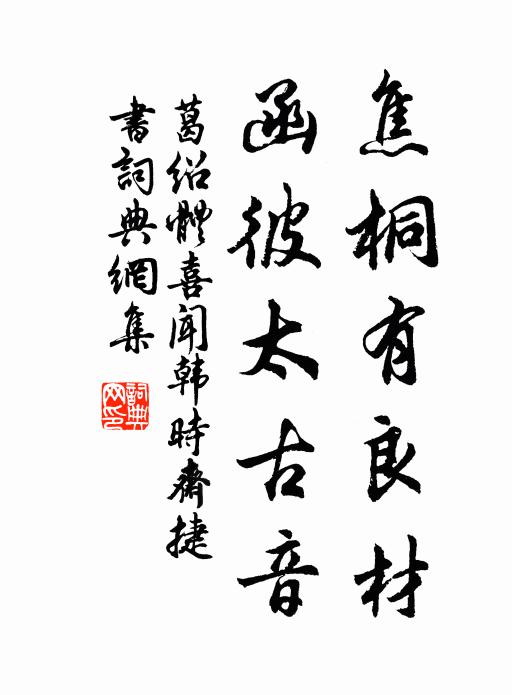 焦桐有良材
函彼太古音
葛绍體喜闻韩時齋捷
書詞典網集
詞典
网印